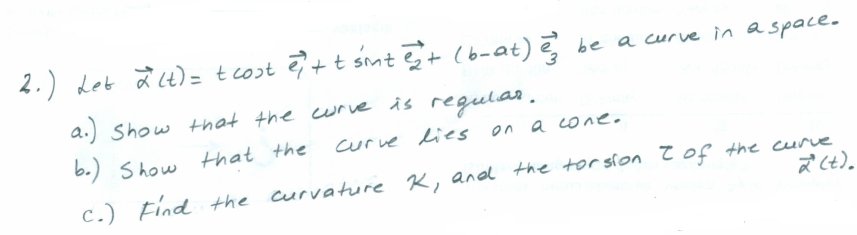 2.) Let α⃗(t) = t cost e⃗₁ + t sint e⃗₂ + (b-at) e⃗₃ be a curve in a space.
a.) Show that the curve is regular.
b.) Show that the curve lies on a cone.
c.) Find the curvature κ, and the torsion τ of the curve α⃗(t).